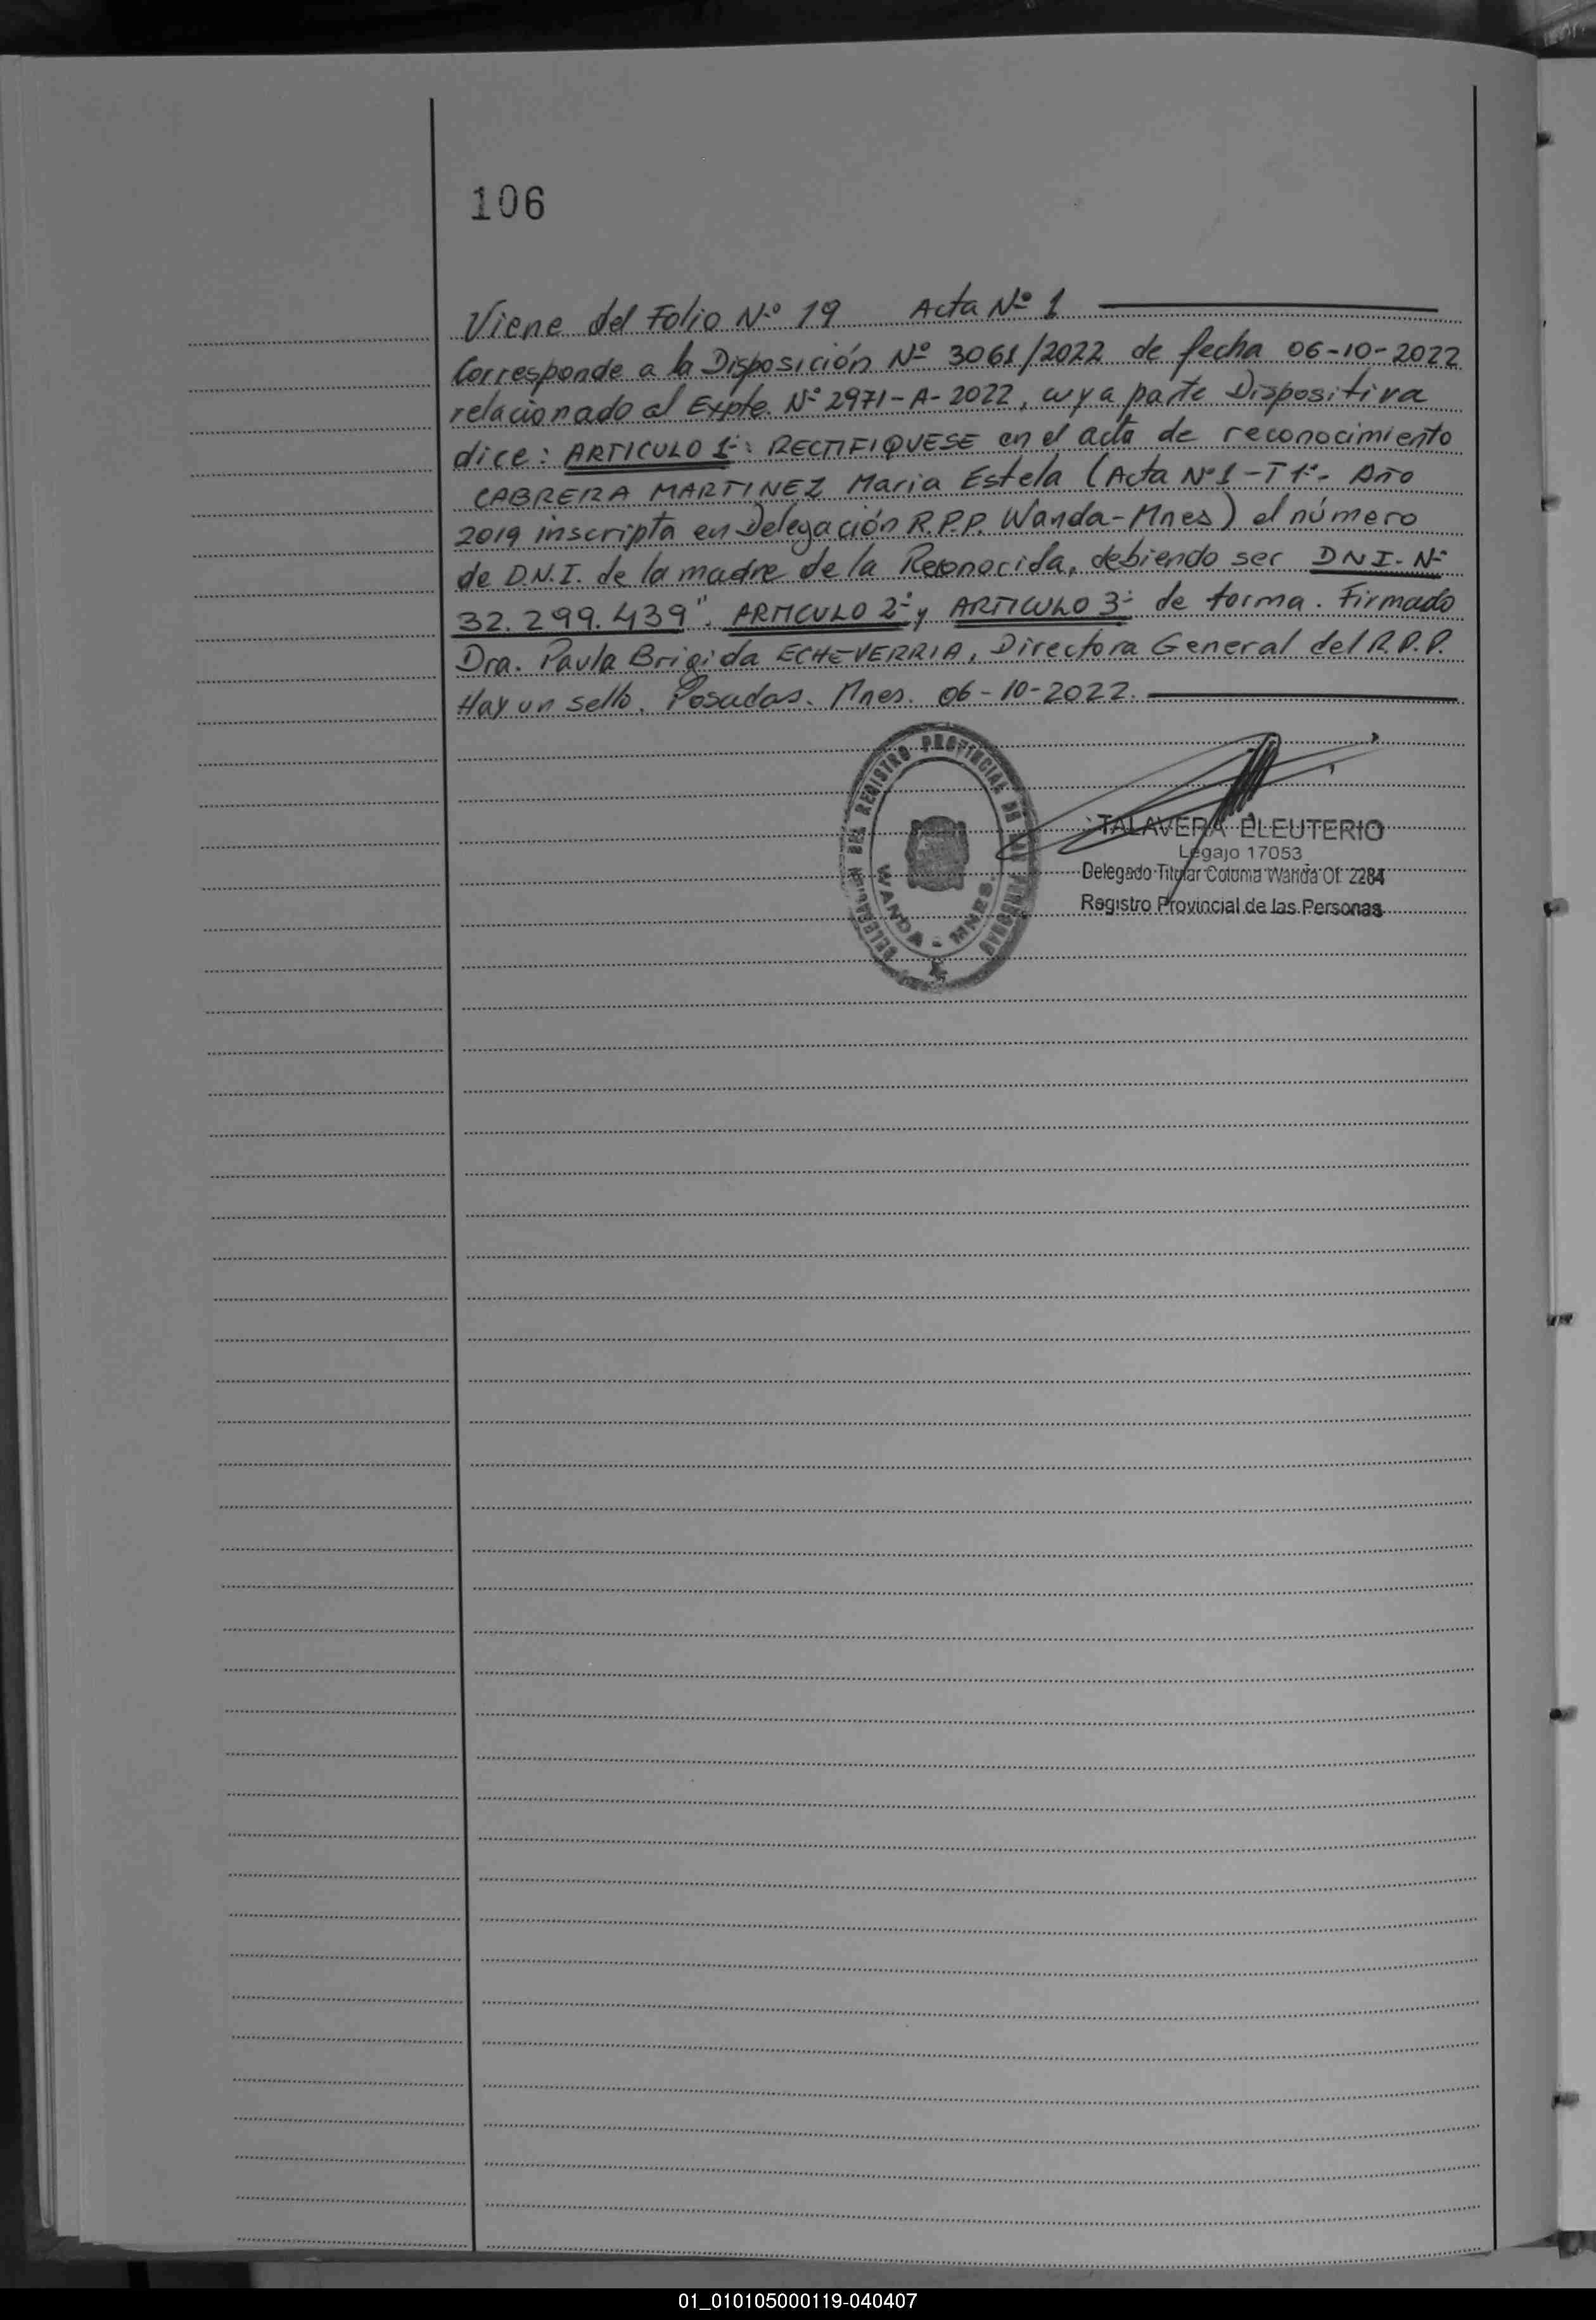 106
Viene del Folio Nº 19 Acta Nº 1
Corresponde a la Disposición Nº 3061/2022 de fecha 06-10-2022
relacionado al Expte. Nº 2971-A-2022, cuya parte Dispositiva
dice: ARTICULO 1º: RECTIFIQUESE en el acta de reconocimiento
CABRERA MARTINEZ Maria Estela (Acta Nº 1-T1º- Año
2019 inscripta en Delegación R.P.P. Wanda-Mnes) el número
de D.N.I. de la madre de la Reconocida, debiendo ser DNI-Nº
32.299.439". ARTICULO 2º y ARTICULO 3º de forma. Firmado
Dra. Paula Brigida ECHEVERRIA, Directora General del R.P.P.
Hay un sello. Posadas. Mnes. 06-10-2022.
DELEGACION DEL REGISTRO PROVINCIAL DE LAS PERSONAS
WANDA - MNES.
TALAVERA ELEUTERIO
Legajo 17053
Delegado Titular Colonia Wanda Of. 2284
Registro Provincial de las Personas
01_010105000119-040407